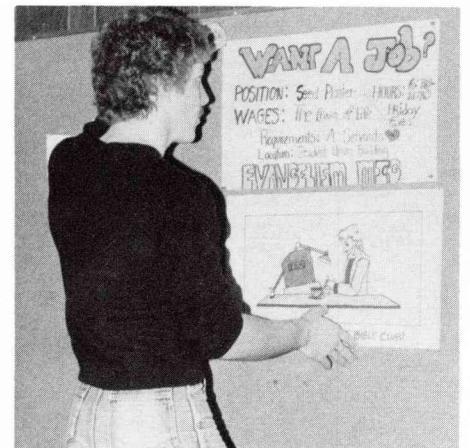 WANT A JOB?
POSITION: Seed Planter HOURS: 6:30-
WAGES: the Crown of Life Friday
Requirements: A Servants
Location: Student Union Building
EVANGELISM
BIBLE CLUB